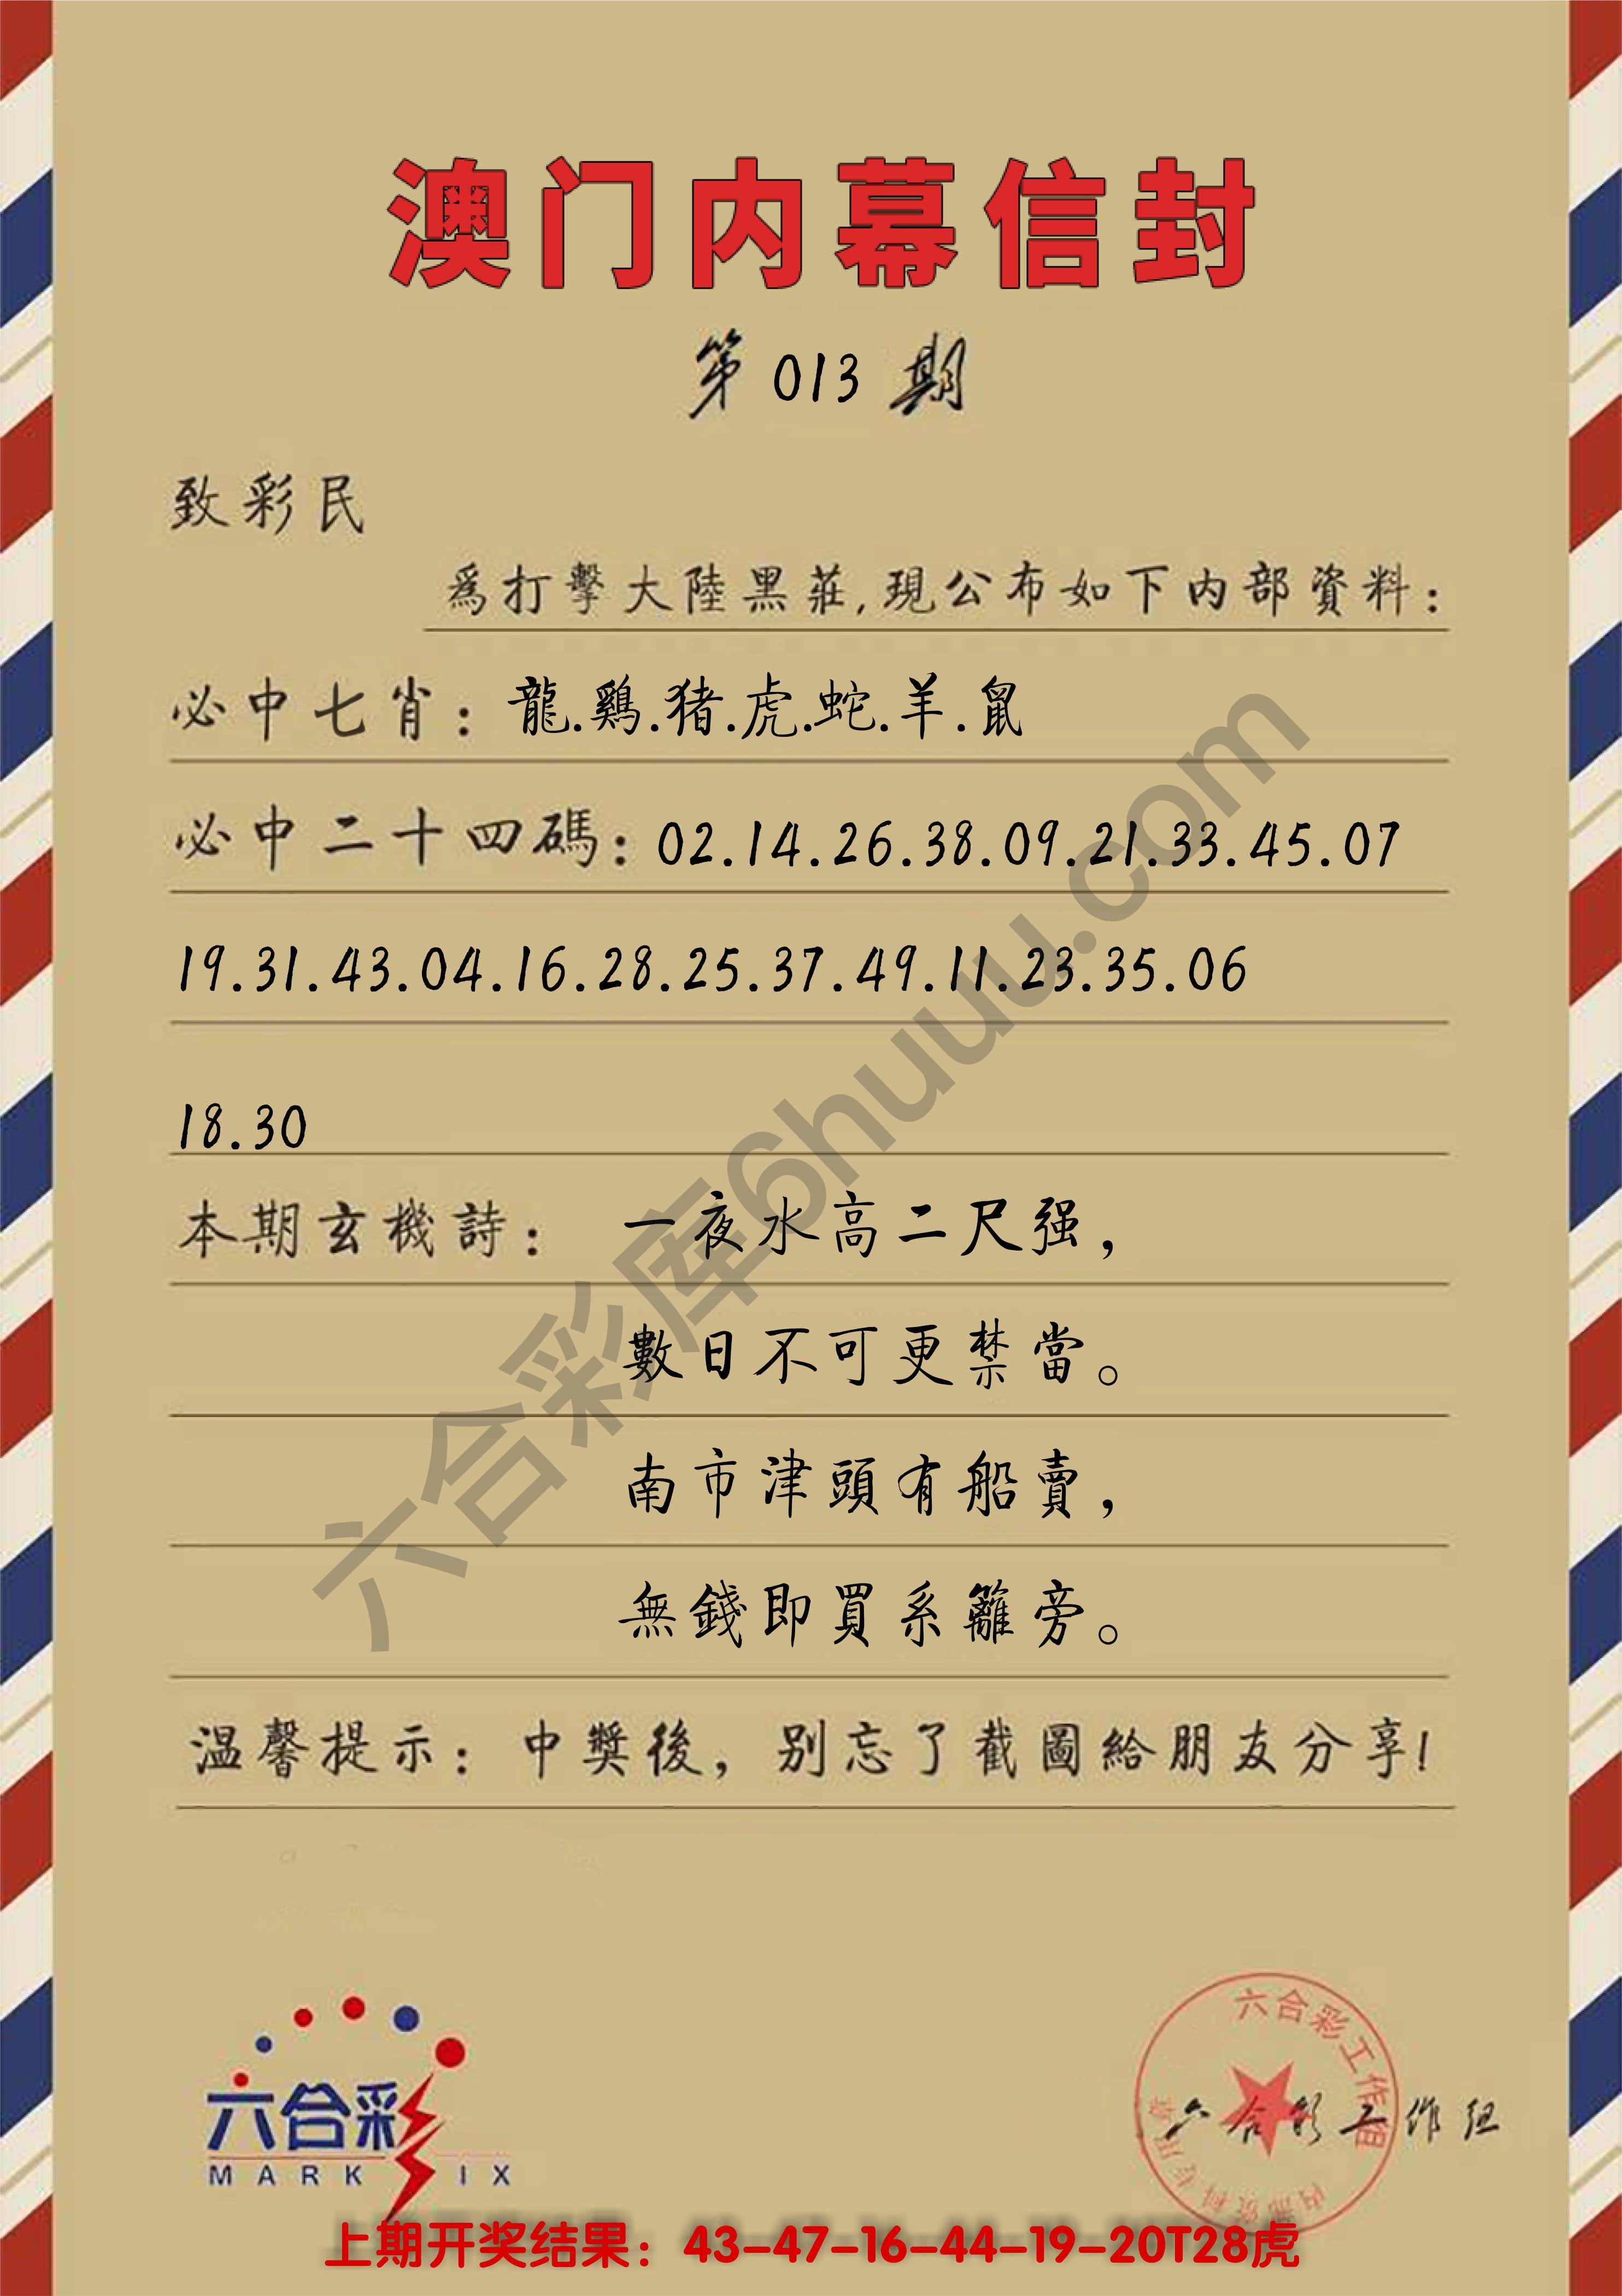 澳门内幕信封
第 013 期
致彩民
爲打擊大陸黑莊,現公布如下内部資料:
必中七肖: 龍.鷄.猪.虎.蛇.羊.鼠
必中二十四碼: 02.14.26.38.09.21.33.45.07
19.31.43.04.16.28.25.37.49.11.23.35.06
18.30
本期玄機詩: 一夜水高二尺强,
數日不可更禁當。
南市津頭有船賣,
無錢即買系籬旁。
温馨提示: 中獎後, 别忘了截圖給朋友分享!
六合彩库6huuu.com
六合彩
MARK SIX
六合彩工作组
内部资料专用章
六合彩工作组
上期开奖结果: 43-47-16-44-19-20T28虎